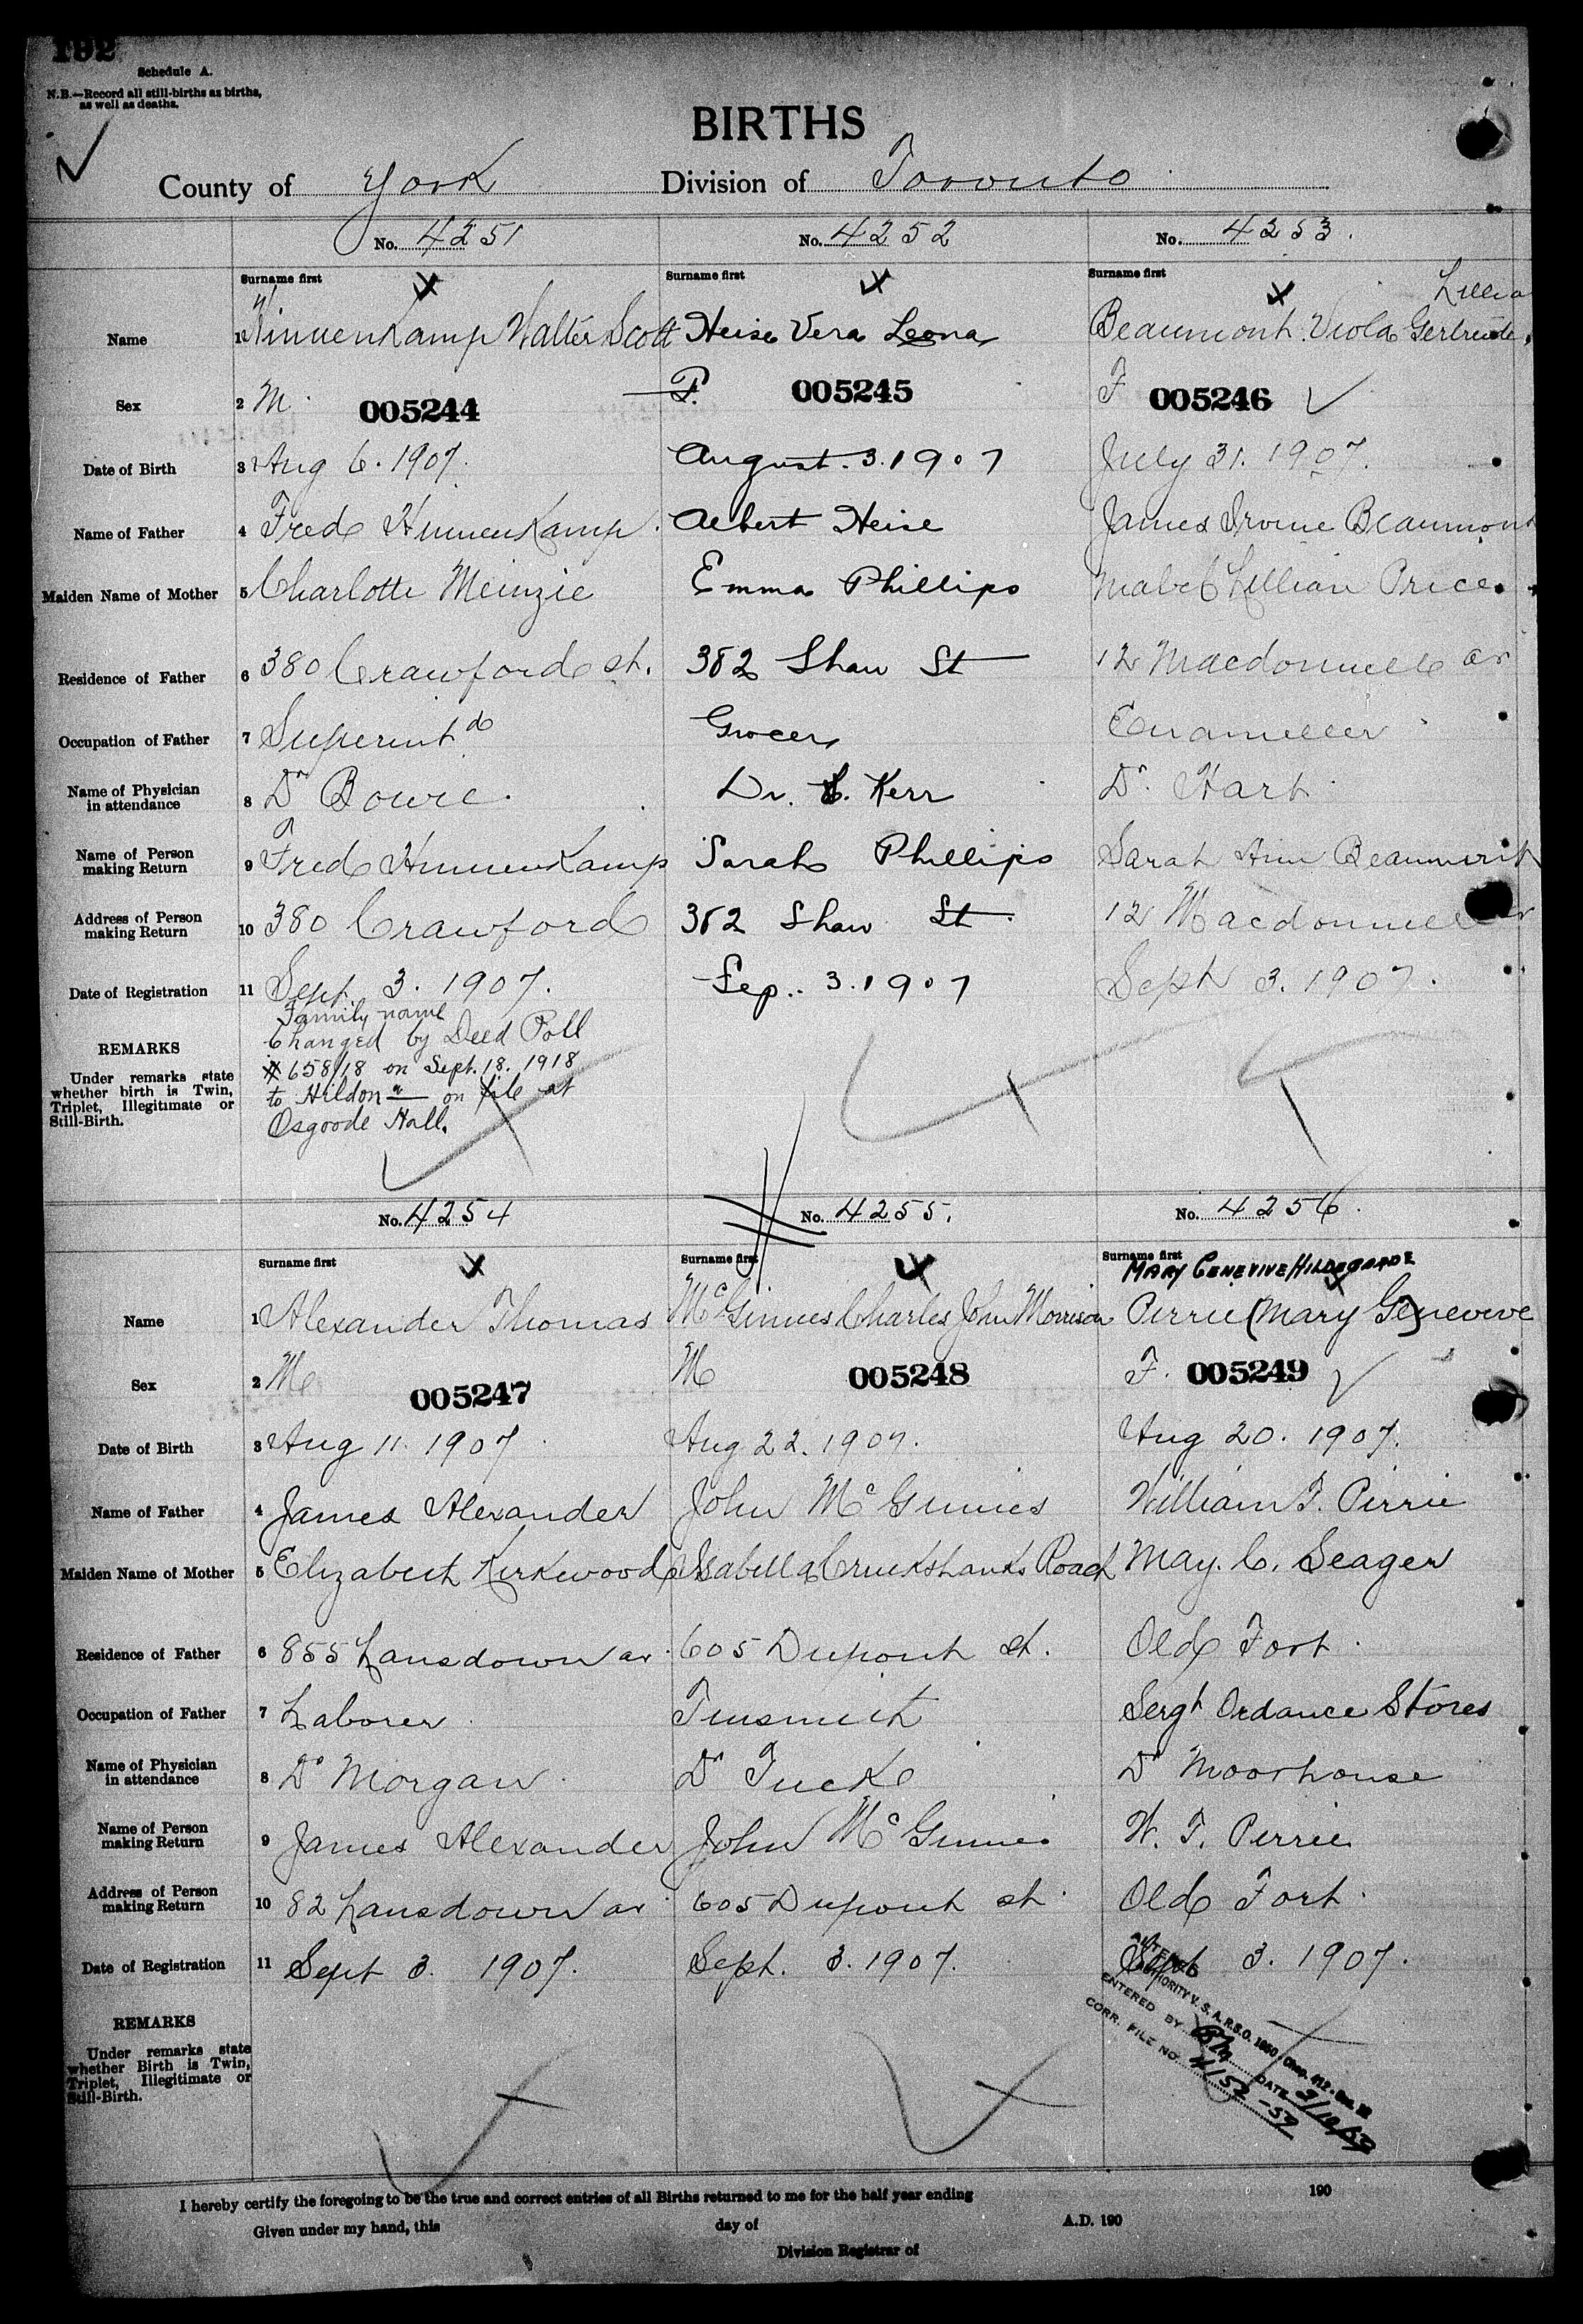 192
Schedule A.
N.B.—Record all still-births as births,
as well as deaths.
BIRTHS
County of York Division of Toronto
No. 4251 No. 4252 No. 4253.
Surname first Surname first Surname first
Lillia
Name 1 Hinnenkamp Walter Scott Heise Vera Leona Beaumont Viola Gertrude
Sex 2 M. 005244 F. 005245 F 005246
Date of Birth 3 Aug 6. 1907. August. 3. 1907 July 31. 1907.
Name of Father 4 Fred Hinnenkamp. Albert Heise James Irvine Beaumont
Maiden Name of Mother 5 Charlotte Meinzie Emma Phillips Mabel Lillian Price
Residence of Father 6 380 Crawford st. 382 Shaw St 12 Macdonnell av
Occupation of Father 7 Superintd Grocer Enameller
Name of Physician
in attendance 8 Dr Bowie. Dr. Kerr Dr. Hart
Name of Person
making Return 9 Fred Hinnenkamp Sarah Phillips Sarah Ann Beaumont
Address of Person
making Return 10 380 Crawford 382 Shaw St. 12 Macdonnell av
Date of Registration 11 Sept. 3. 1907. Sep.. 3. 1907 Sept 3. 1907.
REMARKS
Under remarks state
whether birth is Twin,
Triplet, Illegitimate or
Still-Birth.
Family name
Changed by Deed Poll
# 658/18 on Sept. 18. 1918
to Hildon on file at
Osgoode Hall.
No. 4254 No. 4255. No. 4256.
Surname first Surname first Surname first
MARY GENEVIVE HILDEGARDE
Name 1 Alexander Thomas McGinnes Charles John Morrison Pirrie (Mary Ge)nevive
Sex 2 M 005247 M 005248 F. 005249
Date of Birth 3 Aug 11. 1907 Aug 22. 1907. Aug 20. 1907.
Name of Father 4 James Alexander John McGinnes William F. Pirrie
Maiden Name of Mother 5 Elizabeth Kirkwood Isabella Cruikshanks Roach May. C. Seager
Residence of Father 6 855 Lansdown av. 605 Dupont st. Old Fort.
Occupation of Father 7 Laborer Tinsmith Sergt Ordance Stores
Name of Physician
in attendance 8 Dr Morgan. Dr Tuck Dr Moorhouse
Name of Person
making Return 9 James Alexander John McGinnes W. F. Pirrie
Address of Person
making Return 10 82 Lansdown av 605 Dupont st. Old Fort.
Date of Registration 11 Sept 3. 1907. Sept. 3. 1907. Sept 3. 1907.
REMARKS
Under remarks state
whether Birth is Twin,
Triplet, Illegitimate or
Still-Birth.
AUTHORITY V. S. A. R.S.O. 1950 Chap. 412
ENTERED BY DATE 2/10/59
CORR. FILE NO. 4152-59
I hereby certify the foregoing to be the true and correct entries of all Births returned to me for the half year ending 190
Given under my hand, this day of A.D. 190
Division Registrar of